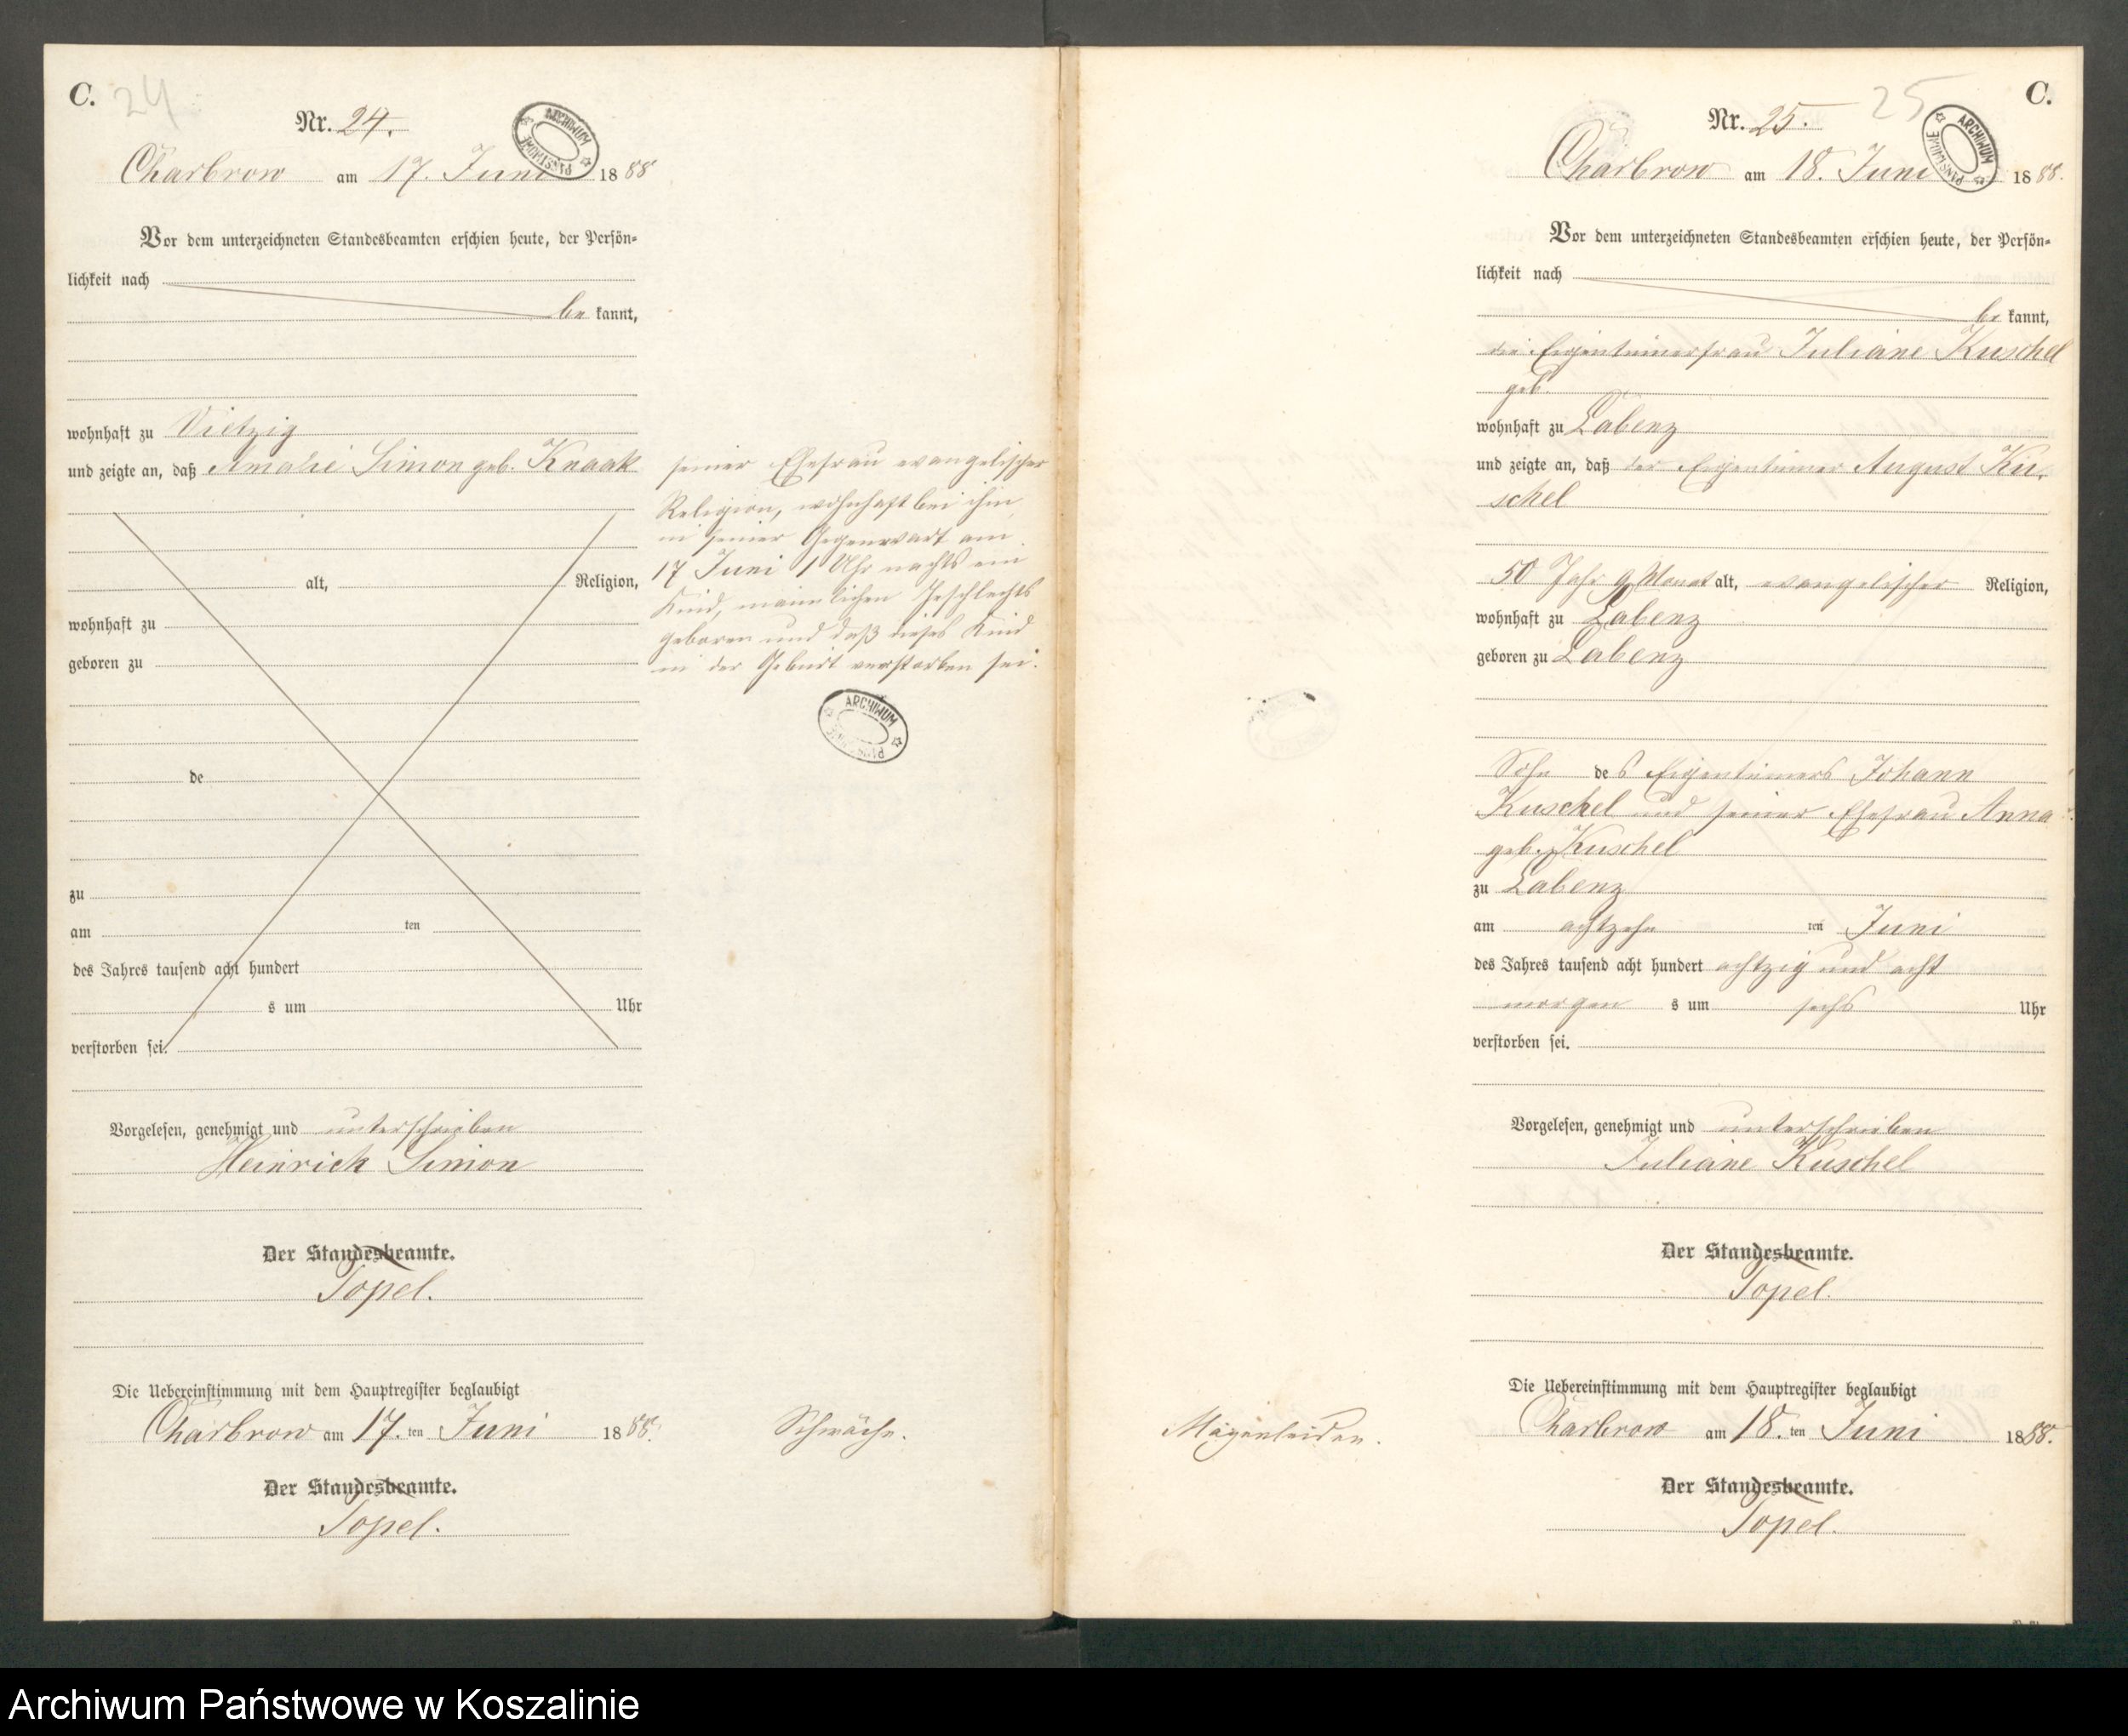 C.
24
Nr. 24.
ARCHIWUM PAŃSTWOWE
Charbrow am 17. Juni 1888
Vor dem unterzeichneten Standesbeamten erschien heute, der Persön-
lichkeit nach
be kannt,
wohnhaft zu Vietzig
und zeigte an, daß Amalie Simon geb. Knaak
alt, Religion,
wohnhaft zu
geboren zu
de
zu
am ten
des Jahres tausend acht hundert
s um Uhr
verstorben sei.
Vorgelesen, genehmigt und unterschrieben
Heinrich Simon
Der Standesbeamte.
Topel.
Die Uebereinstimmung mit dem Hauptregister beglaubigt
Charbrow am 17. ten Juni 1888.
Der Standesbeamte.
Topel.
seiner Ehefrau evangelischer
Religion, wohnhaft bei ihm
in seiner Gegenwart am
17 Juni 1 Uhr nachts ein
Kind, männlichen Geschlechts
geboren und daß dieses Kind
in der Geburt verstorben sei.
ARCHIWUM PAŃSTWOWE
Schwäche.
25
C.
Nr. 25.
ARCHIWUM PAŃSTWOWE
Charbrow am 18. Juni 1888.
Vor dem unterzeichneten Standesbeamten erschien heute, der Persön-
lichkeit nach
be kannt,
die Eigentümerfrau Juliane Kuschel
geb.
wohnhaft zu Labenz
und zeigte an, daß der Eigentümer August Ku-
schel
50 Jahr 9 Monat alt, evangelischer Religion,
wohnhaft zu Labenz
geboren zu Labenz
Sohn des Eigentümers Johann
Kuschel und seiner Ehefrau Anna
geb. Kuschel
zu Labenz
am achtzehn ten Juni
des Jahres tausend acht hundert achtzig und acht
morgen s um sechs Uhr
verstorben sei.
Vorgelesen, genehmigt und unterschrieben
Juliane Kuschel
Der Standesbeamte.
Topel.
Die Uebereinstimmung mit dem Hauptregister beglaubigt
Magenleiden.
Charbrow am 18. ten Juni 1888.
Der Standesbeamte.
Topel.
Archiwum Państwowe w Koszalinie